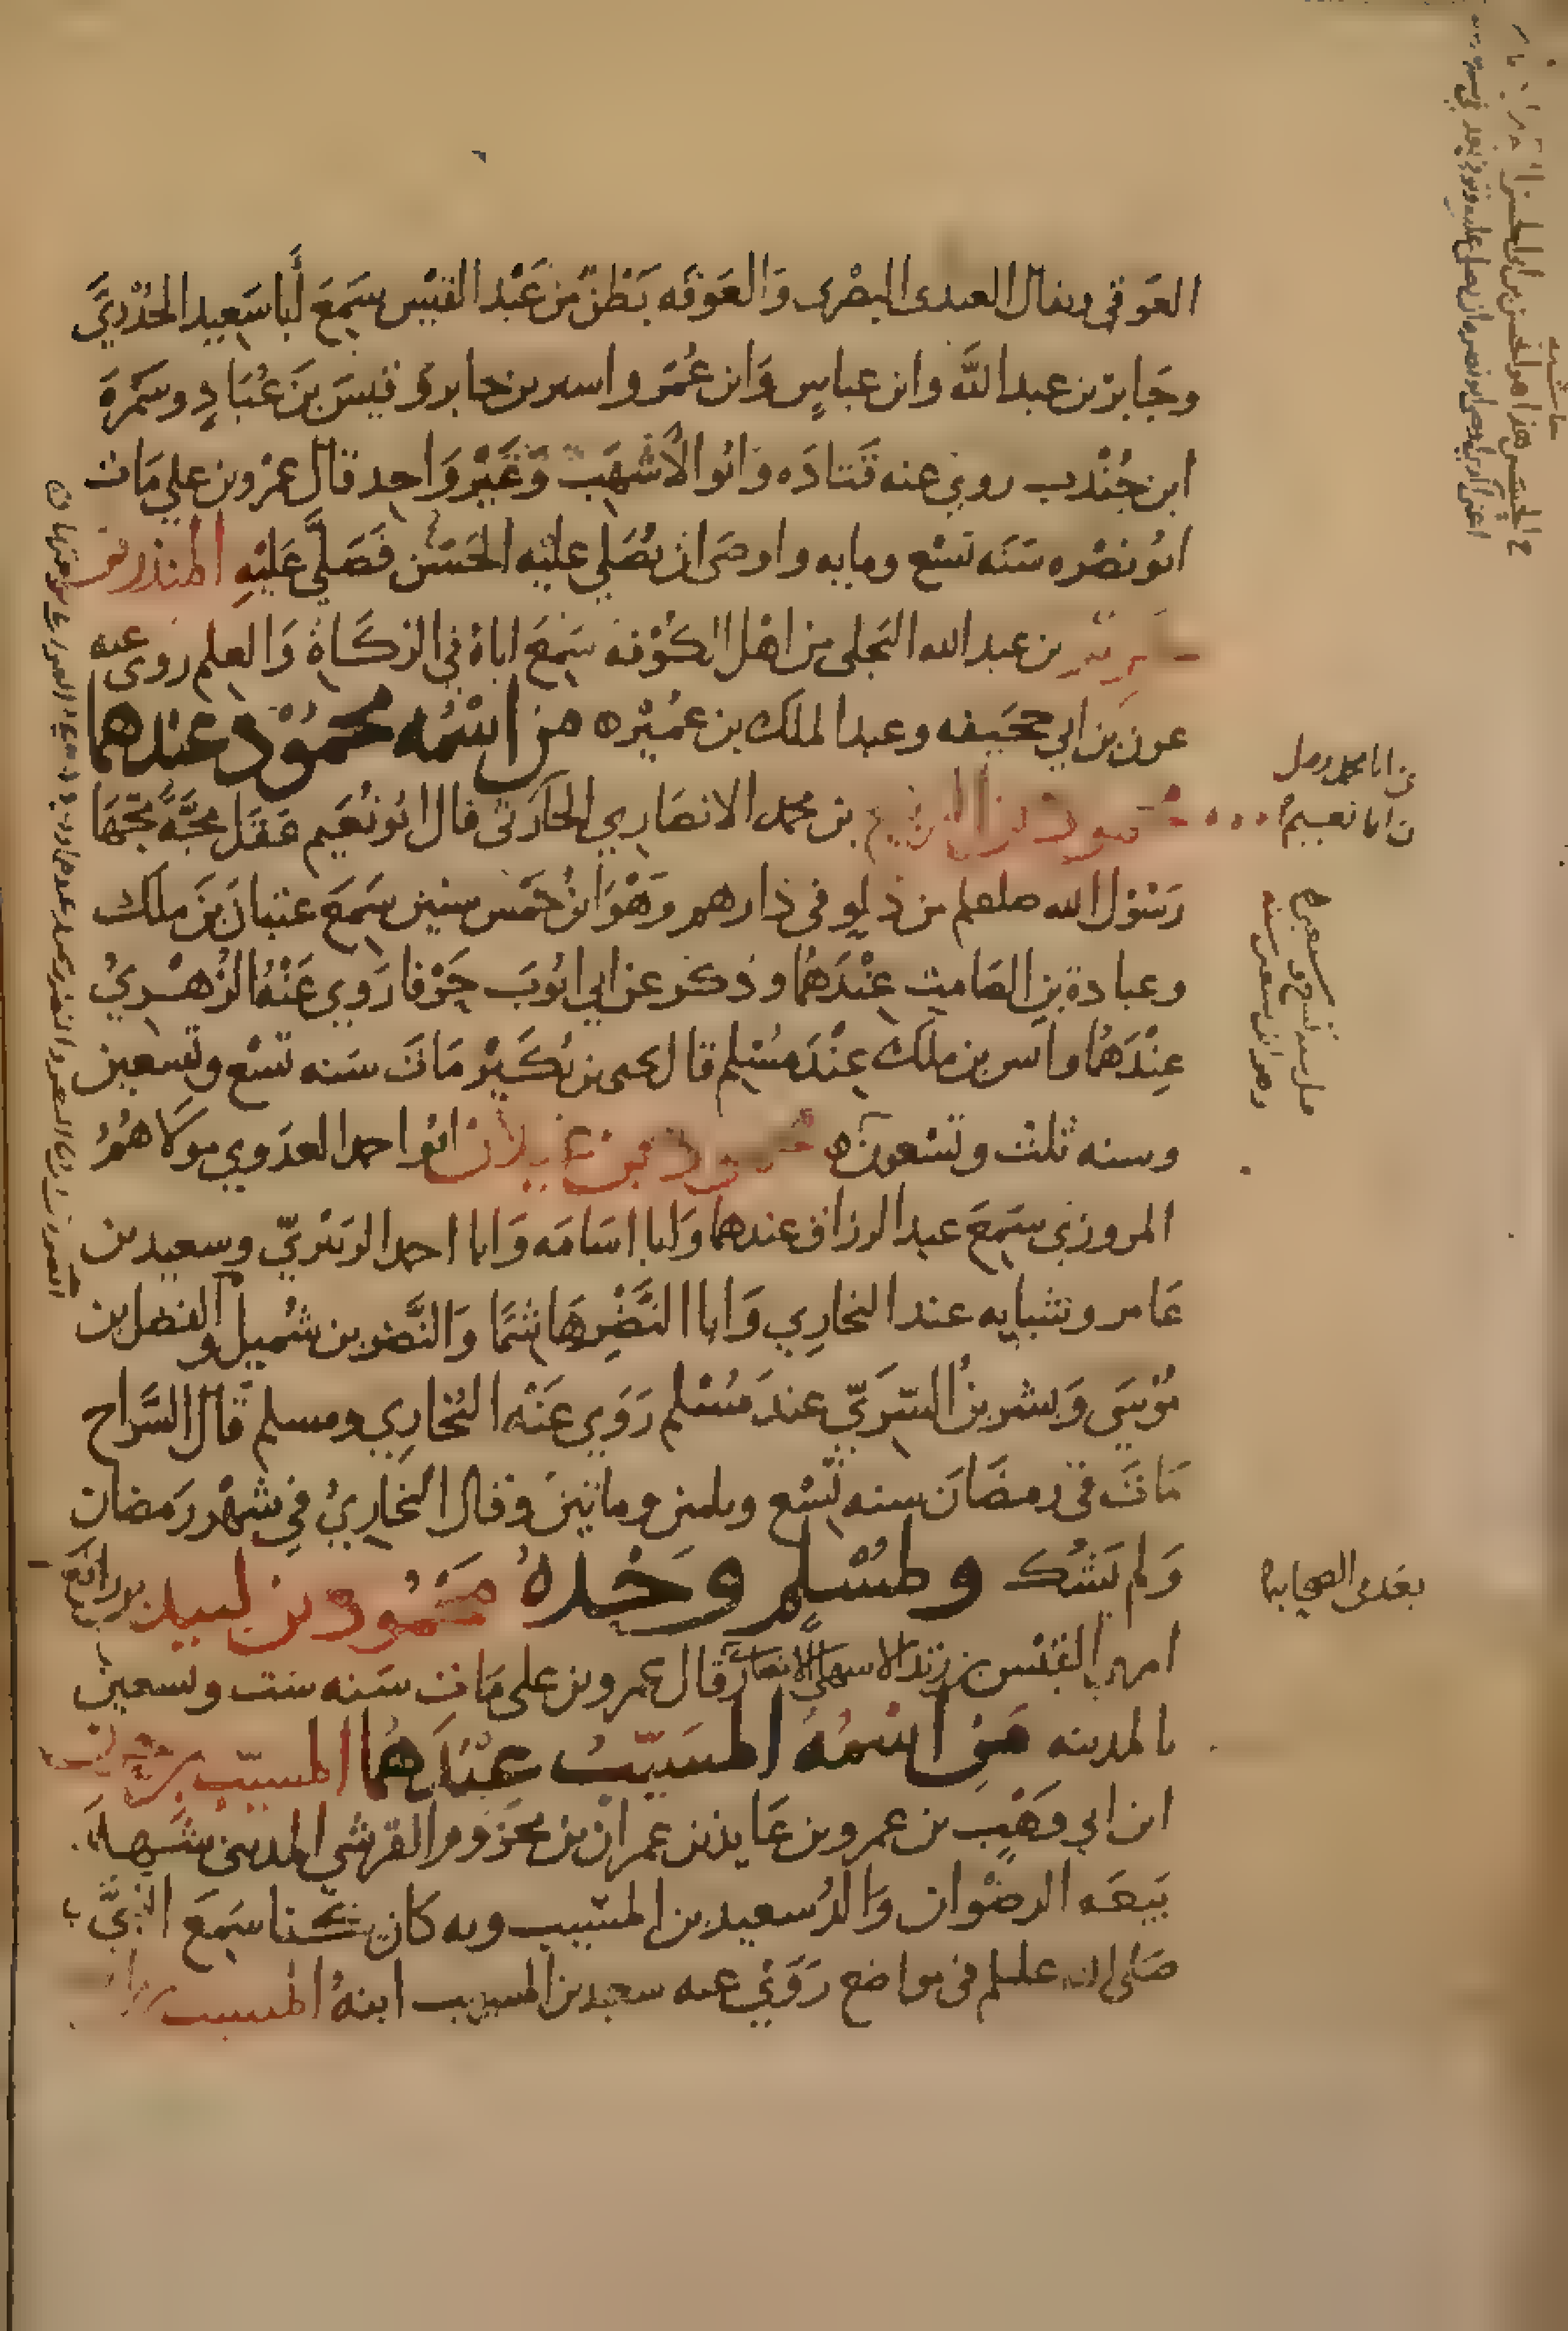 العَوَقي ويقال العبدى البصْرى وَالعَوَقَه بَطْنٌ مِن عَبْد القَيْس سَمِعَ أَبا سَعِيد الخُدْرِيَّ
وجَابرَ بن عبد اللَّه وابن عباسٍ وَابن عُمَر واسير بن جابر وَقيسَ بنَ عُبَادٍ وسَمُرَةَ
ابن جُنْدب روي عنه قَتَادَه وَابُو الأَشْهَب وَغَيْر وَاحِد قال عَمْرو بن علي مَات
ابُو نضْرَه سَنَه تسْع ومايه واوصَى ان يُصَلي عليْه الحَسَن فَصَلَّي عَليْهِ المنذر بن
جَرِير بن عبد الله البَجلى من اهْل الكُوْفه سَمِعَ اباهُ في الزكَاةِ وَالعِلم رَوى عنه
عون بن ابي جحَيفه وعبد الملك بن عمُيْر ه مَن اسْمُه محمُوْد عندهما
محمود بن الربيع بن محمد الانصَارِي الحَارثي قال ابُو نُعَيم عَقَل مجَّةً مجَّهَا
رَسُوْل الله صلعلم من دَلوٍ في دَارهم وَهْوَ ابنُ خَمْس سنين سَمِعَ عتبانَ بنَ ملك
وعبادة بن الصَامِت عِنْدَهُمَا وذكر عن ابي ايُوبَ حَرْفا رَوي عَنْهُ الزُهْرِيُ
عِنْدَهُمَا وانَس بن ملك عِنْدَ مسُلِم قال يحيى بن بُكَيْر مَاتَ سَنه تسْع وتِسعين
وسنه ثلث وتسْعون ه محمود بن غيلان ابُو احمد العدَوي موْلاهُمُ
المروزي سَمِعَ عبد الرزاق عندهما وَابا اسَامَه وَابا احمد الزبَيْريّ وسعيد بن
عَامر وشبابه عند البخارِي وَابا النَّضْر هَاشمًا وَالنَّضر بن شُميل والفضل بن
مُوْسَي وَبشر بنُ السَّرِيّ عندَ مسُلم رَوَي عَنْه البُخارِي ومسلم قَال السَّراج
مَاتَ في رَمضَانَ سنه تسْع وثلثين ومائتين وقال البخَارِيُ في شَهْر رَمضان
وَلم يَشُك ولمسُلِم وَحْدهُ محمُود بن لبيد بن رافع
امرى القَيْس بن زيد الاشهلي الانصَارِي قَال عمرو بن على مَات سَنه ست وتسعين
بالمدينه مَن اسْمُهُ المسَيّبُ عِنْدَهُمَا المسيّب بن حزن
ابن ابي وَهْبٍ بن عمرو بن عَايذ بن عمران بن مخزوم القرشي المدينى شَهِدَ
بَيعَه الرضْوان وَالدُ سعيد بن المسَيب وبه كان يكنا سَمِعَ النَّبيَّ
صَلى الله عليلم في مواضع رَوَي عنه سعيد بن المسيب ابنهُ المسيب بن
حاشيه
بعَد فى الصحابه